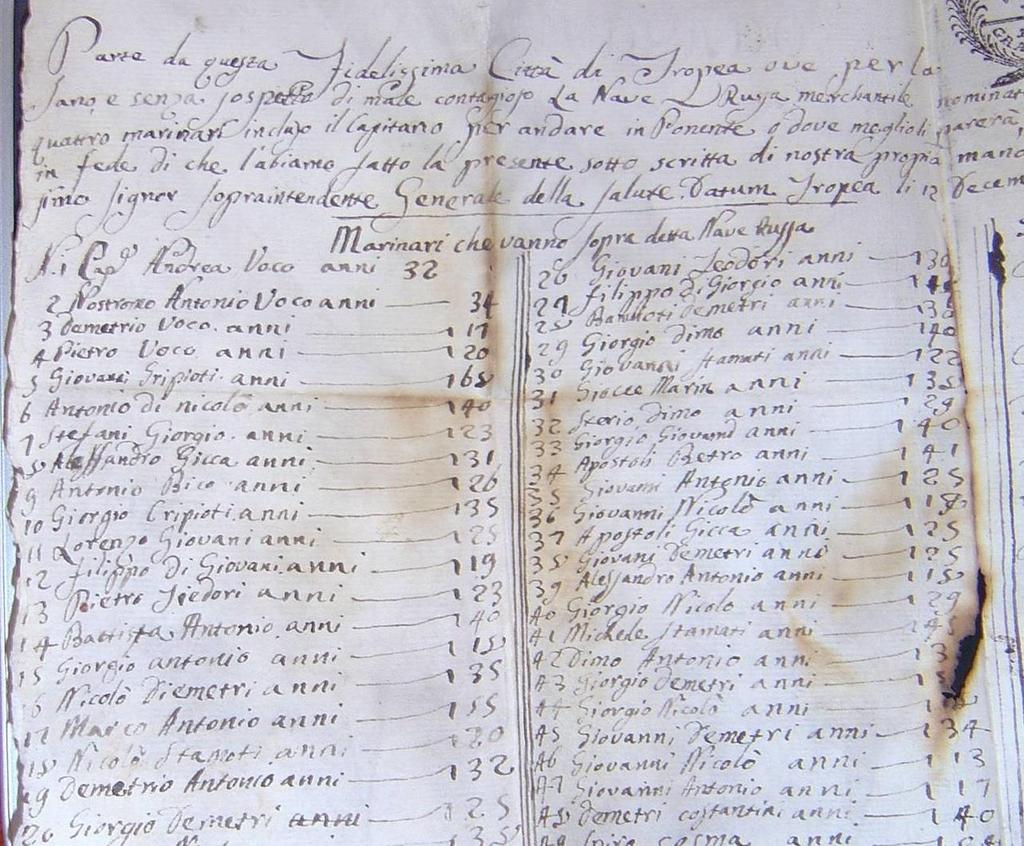 Parte da questa Fidelissima Città di Tropea ove per la
sano, e senza sospetto di male contagioso La Nave Russa merchantile nominat
quattro marinari incluso il Capitano per andare in Ponente o dove meglio li parerà,
in fede di che l'abiamo fatto la presente sotto scritta di nostra propria mano
simo signor sopraintendente Generale della salute. Datum Tropea li 12 Decem
Marinari che vanno sopra detta Nave Russa
N.1 Capº Andrea Voco anni 32
2 Nostromo Antonio Voco anni 34
3 Demetrio Voco anni 17
4 Pietro Voco anni 120
5 Giovani Gripioti anni 168
6 Antonio di nicolò anni 140
7 Stefani Giorgio anni 123
8 Alessandro Gicca anni 131
9 Antonio Bico anni 126
10 Giorgio Cripioti anni 135
11 Lorenzo Giovani anni 125
12 filippo Di Giovani anni 119
13 Pietro Teodori anni 123
14 Battista Antonio anni 140
15 Giorgio antonio anni 118
6 Nicolò Diemetri anni 135
17 Marco Antonio anni 155
18 Nicolò Stamoti anni 120
19 Demetrio Antonio anni 132
20 Giorgio Demetri anni 125
26 Giovani Teodori anni 130
27 filippo di Giorgio anni
28 Demetri anni 136
29 Giorgio dimo anni 140
30 Giovanni stamati anni 122
31 Giocce Marin anni 138
32 Sterio dimo anni 129
33 Giorgio Giovani anni 140
34 Apostoli Pietro anni 141
35 Giovani Antonio anni 125
36 Giovanni Nicolò anni 118
37 Apostoli Gicca anni 125
38 Giovani Demetri anni 125
39 Alessandro Antonio anni 118
40 Giorgio Nicolò anni 129
41 Michele Stamati anni
42 Dimo Antonio anni
43 Giorgio Demetri anni
44 Giorgio Nicolò anni
45 Giovanni Demetri anni 134
46 Giovanni Nicolò anni 113
47 Giovanni Antonio anni 117
48 Demetri costantini anni 140
49 Spiro cosma anni